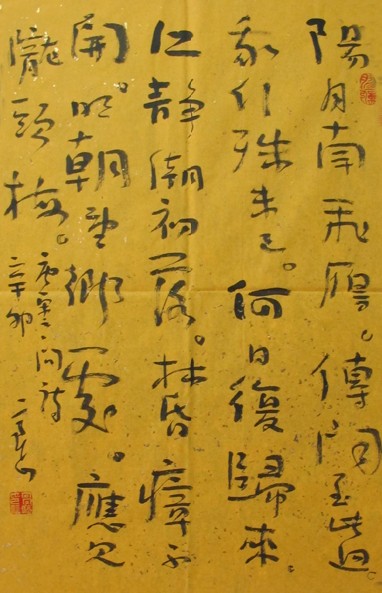 陽月南飛鴈。傳聞至此迴。
我行殊未已。何日復歸來。
江靜潮初落。林昏瘴不
開。明朝望鄉處。應見
隴頭梅。
唐宋之問詩
辛卯